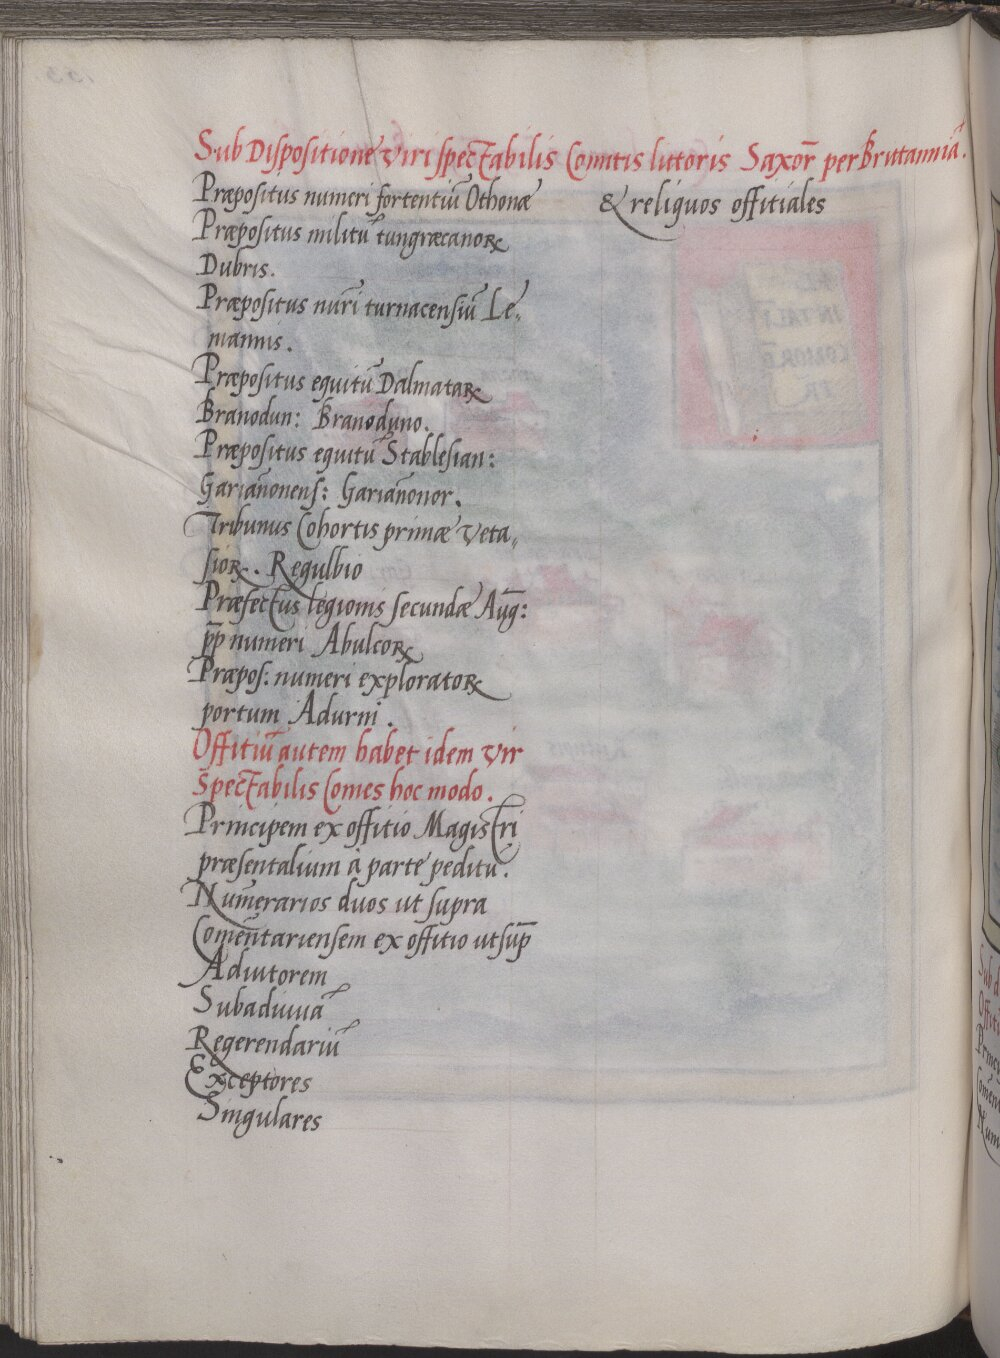 Sub Dispositione viri spectabilis Comitis littoris Saxor̄ per Brittanniā.
Præpositus numeri fortentiū Othonæ
& reliquos offitiales
Præpositus militū tungræcanoꝝ
Dubris.
Præpositus nūri turnacensiū Le,,
mannis.
Præpositus equitū Dalmataꝝ
Branodun: Branoduno.
Præpositus equitū Stablesian:
Gariāonens: Gariāonor.
Tribunus Cohortis primæ Veta,,
sioꝝ. . Regulbio
Præfectus legionis secundæ Aūg:
p̄p numeri Abulcoꝝ
Præpos: numeri exploratoꝝ
portum Adurni.
Offitiū autem habet idem vir
spectabilis Comes hoc modo.
Principem ex offitio Magistri
præsentalium à parte peditū.
Num̄erarios duos ut supra
Comēntariensem ex offitio ut sup̄
Adiutorem
Subadiuuā
Regerendariū
Exceptores
Singulares